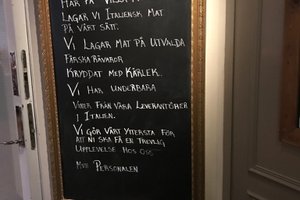 Här på Vill
Lagar vi Italiensk mat
på vårt sätt.
Vi Lagar mat på utvalda
färska råvaror
Kryddat med Kärlek.
Vi har underbara
Viner från våra Leverantörer
i Italien.
Vi gör vårt yttersta för
att ni ska få en trevlig
upplevelse hos oss.
Mvh Personalen